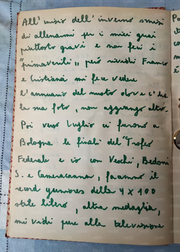 All' inizio dell' inverno smisi
di allenarmi per i miei guai
piuttosto gravi e non feci i
"primaverili" per niente Franco
e Cristiano mi fece vedere
l'annuario del nostro dove c'è
la mia foto, non aggiungo altro.
Poi verso luglio ci furono a
Bologna le finali del Trofeo
Federale e io con Vecchi, Bedoni
S. e Camercanna, facemmo il
record juniores della 4 x 400
stile libero, altra medaglia,
mi vidi pure alla televisione